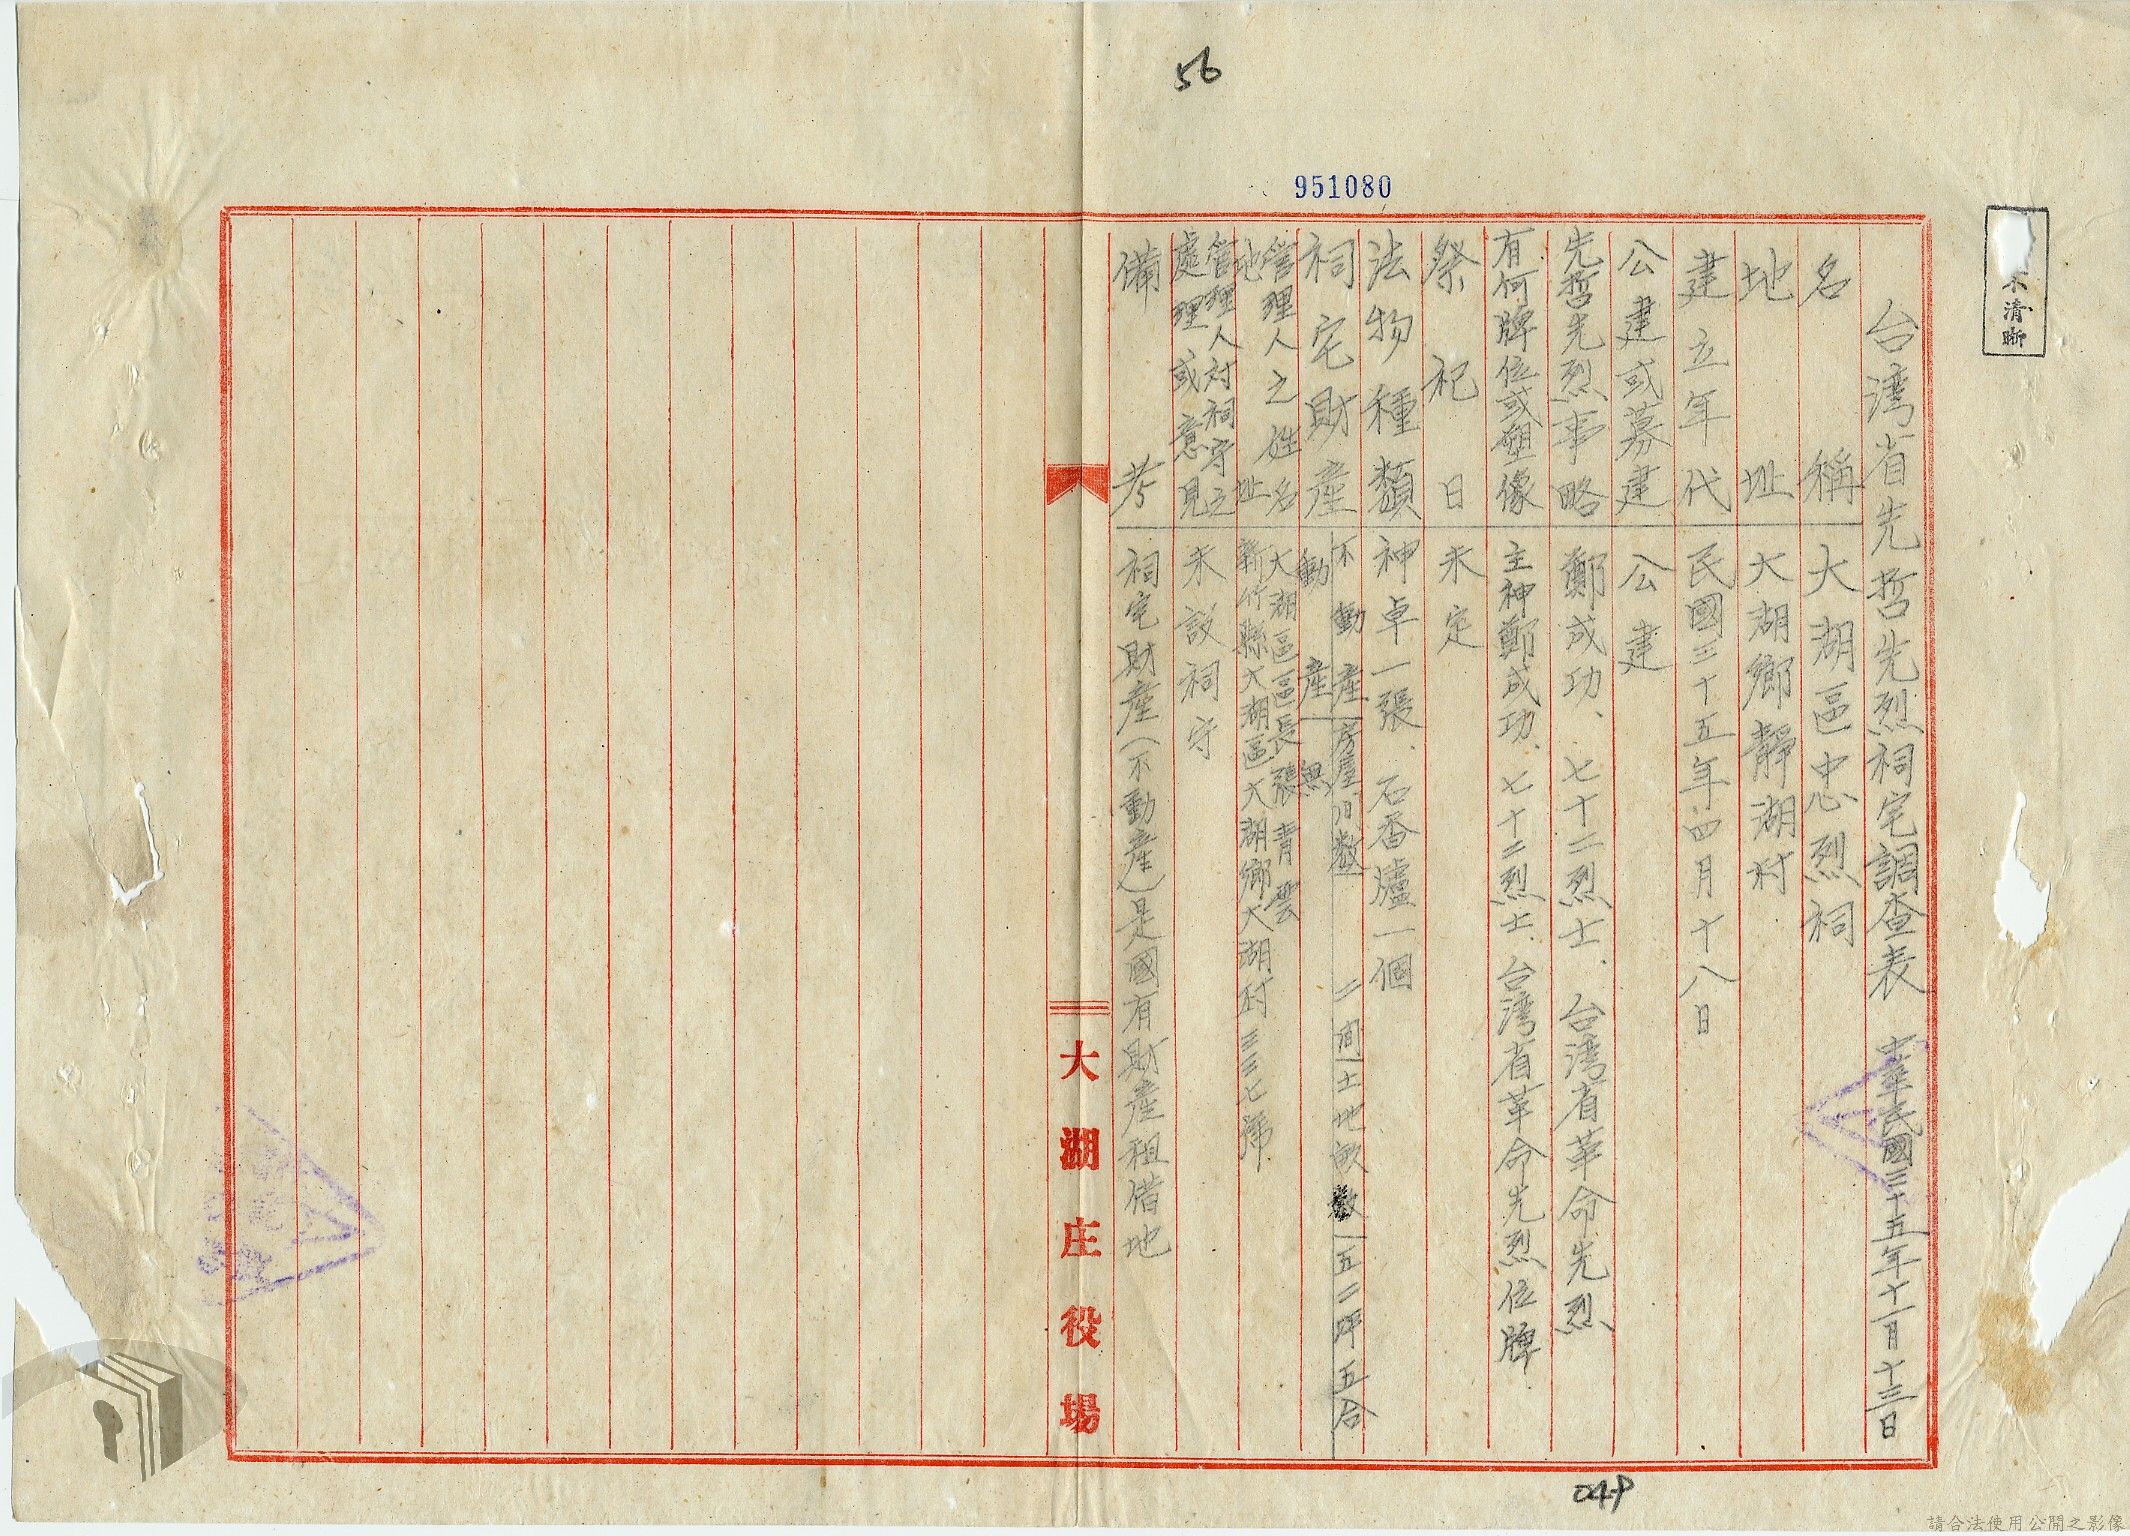 56
951080
不清晰
台湾省先哲先烈祠宅調查表 中華民國三十五年十一月十三日
名稱 大湖區忠烈祠
地址 大湖鄉靜湖村
建立年代 民國三十五年四月十八日
公建或募建 公建
先哲先烈事略 鄭成功、七十二烈士、台湾省革命先烈
有何牌位或塑像 主神鄭成功、七十二烈士、台湾省革命先烈位牌
祭祀日 未定
法物種類 神卓一張、石香爐一個
祠宅財產 不動產 房屋間数 二間 土地畝数 一五二坪五合
動產 無
管理人之姓名 大湖區區長張青雲
地址 新竹縣大湖區大湖鄉大湖村三三七號
管理人对祠守之
處理或意見 未設祠守
備考 祠宅財產(不動產)是國有財產租借地
大湖庄役場
049
請合法使用公開之影像